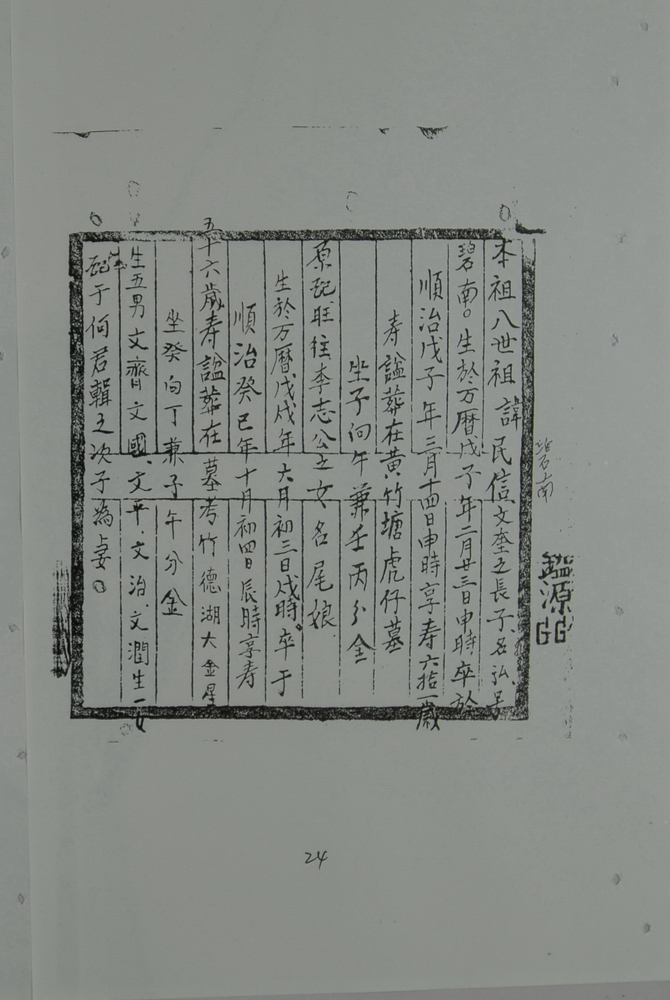 碧南
鑑源
本祖八世祖諱民信文奎之長子名弘号
碧南。生於万曆戊子年二月廿三日申時卒於
順治戊子年三月十四日申時享寿六拾一歲
寿謚葬在黃竹塘虎仔墓
坐子向午兼壬丙分金
原配旺往李志公之女名尾娘
生於万曆戊戌年六月初三日戌時。卒于
順治癸巳年十月初四日辰時享寿
五十六歲寿謚葬在墓考竹德湖大金星
坐癸向丁兼子午分金
生五男文齊文國、文平、文治、文潤生一女
配于何君輯之次子為妻。
24